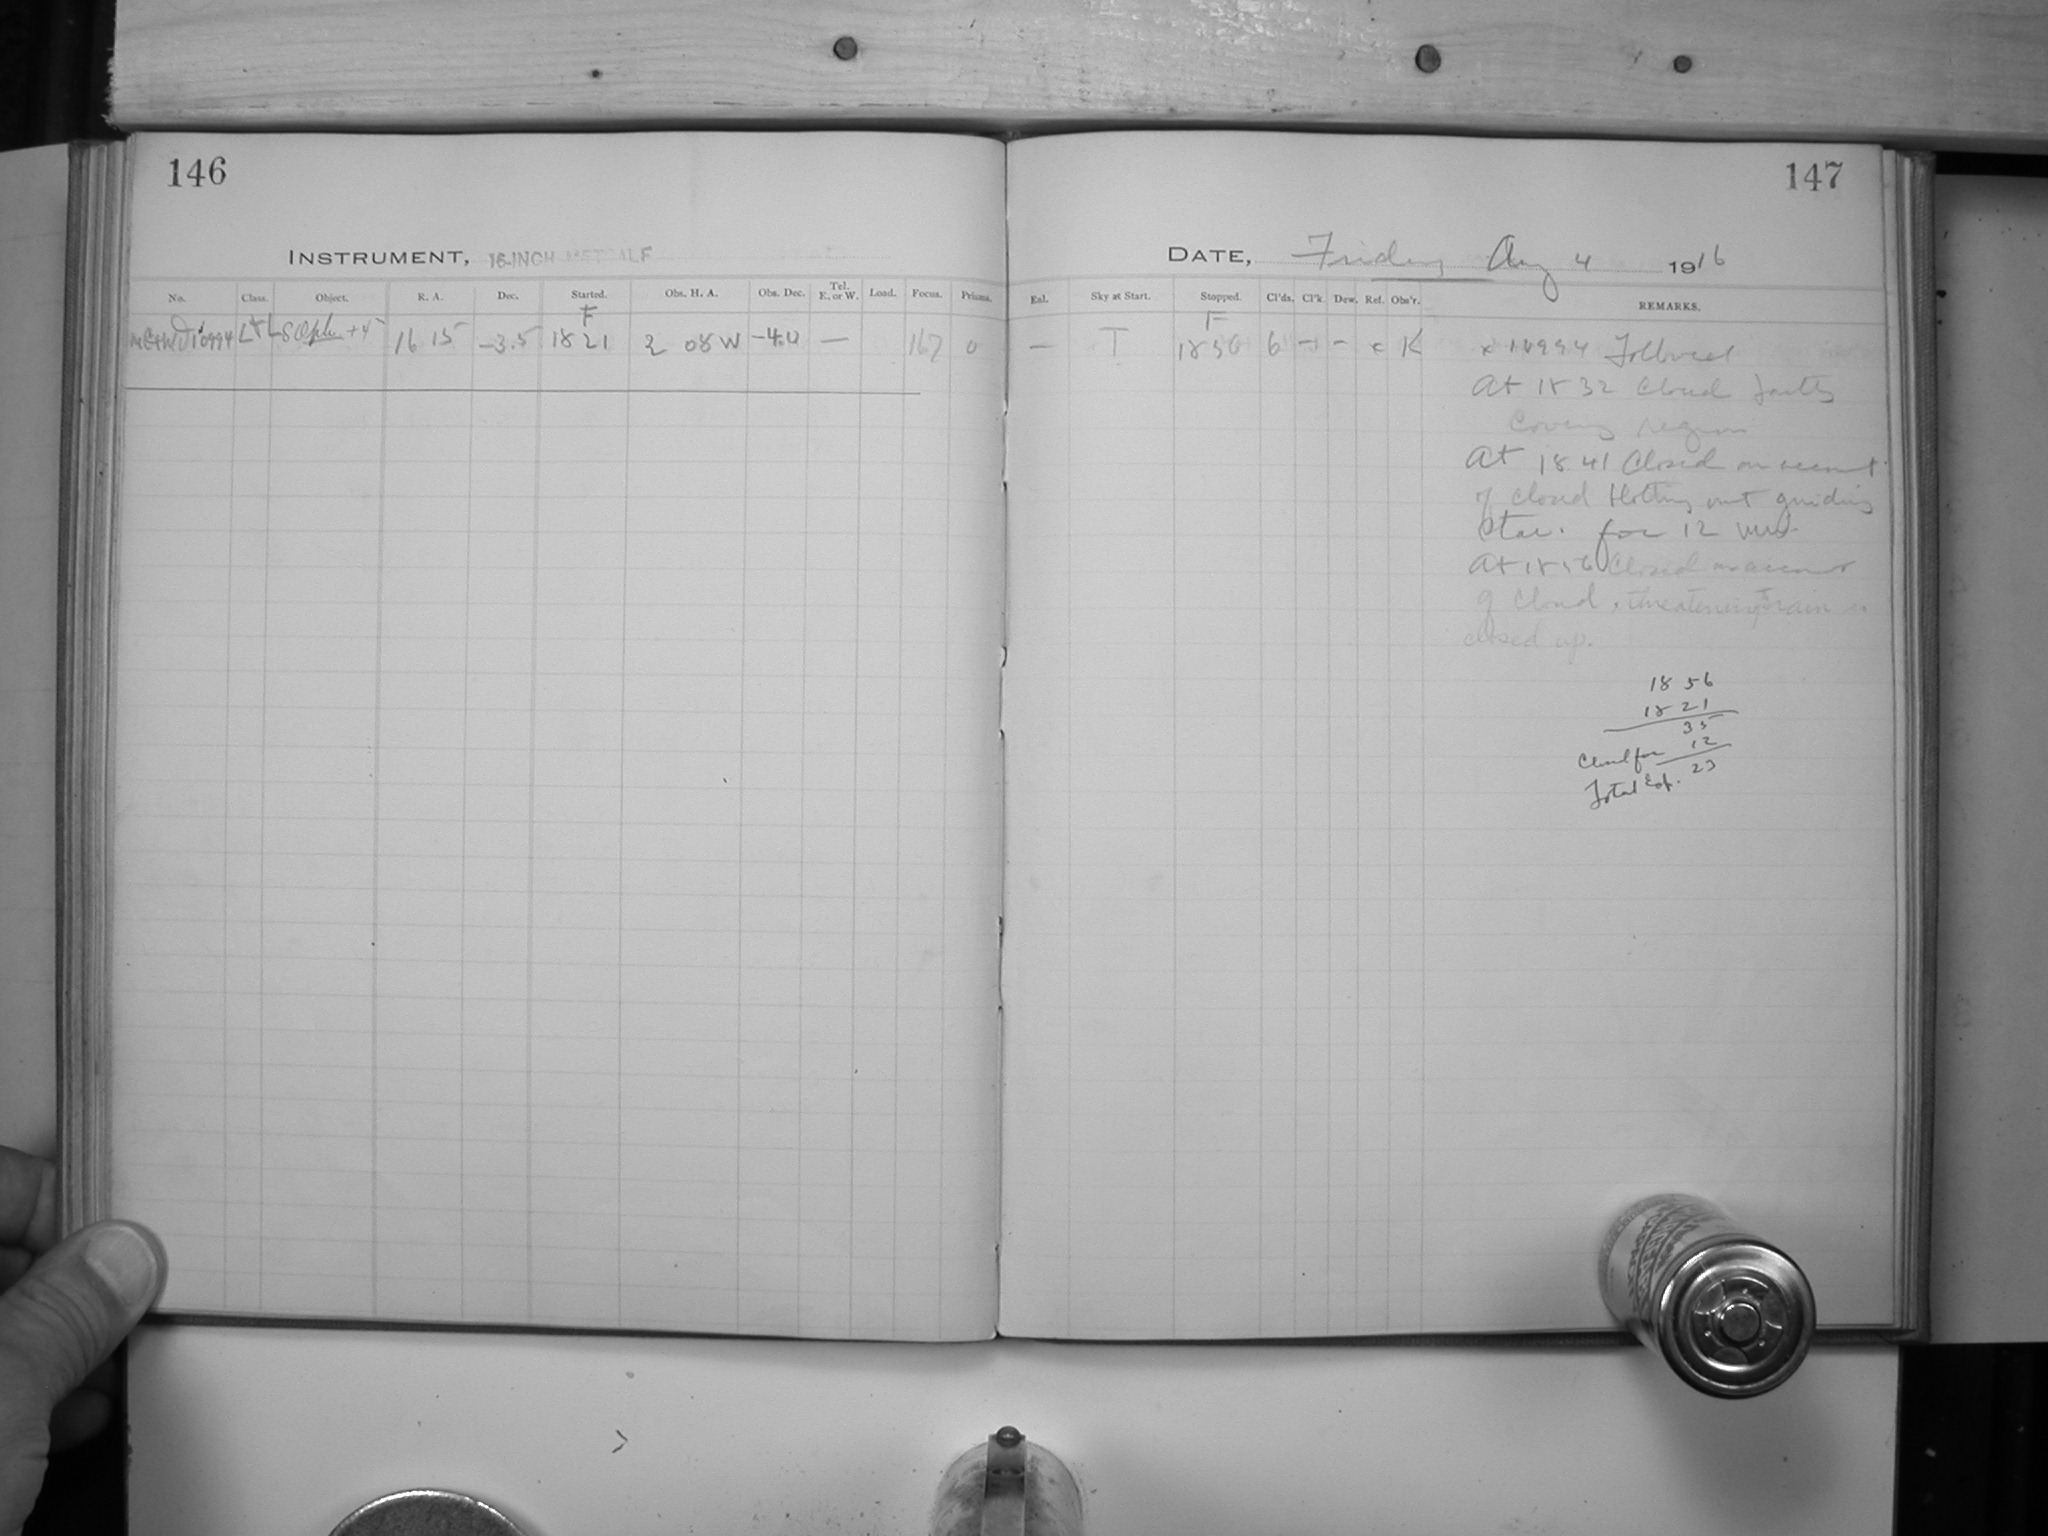 146
147
INSTRUMENT, 16-INCH METCALF
DATE, Friday Aug 4 1916
No. Class. Object. R. A. Dec. Started. Obs. H. A. Obs. Dec. Tel. E. or W. Load. Focus. Prisms.
Exl. Sky at Start. Stopped. Cl'ds. Cl'k. Dew. Ref. Obs'r. REMARKS.
F
F
10994 L 8 Oph +4 16 15 -3.5 18 21 2 08 W -4.0 — 167 0
— T 18 56 6 - - x K x 10994 Followed
At 18 32 Cloud
Covering region
At 18 41 Closed on account
of cloud blotting out guiding
Star. for 12
At 18 56 Closed on account
of cloud, threatening rain
closed up.
18 56
18 21
35
Closed for 12
Total Exp. 23